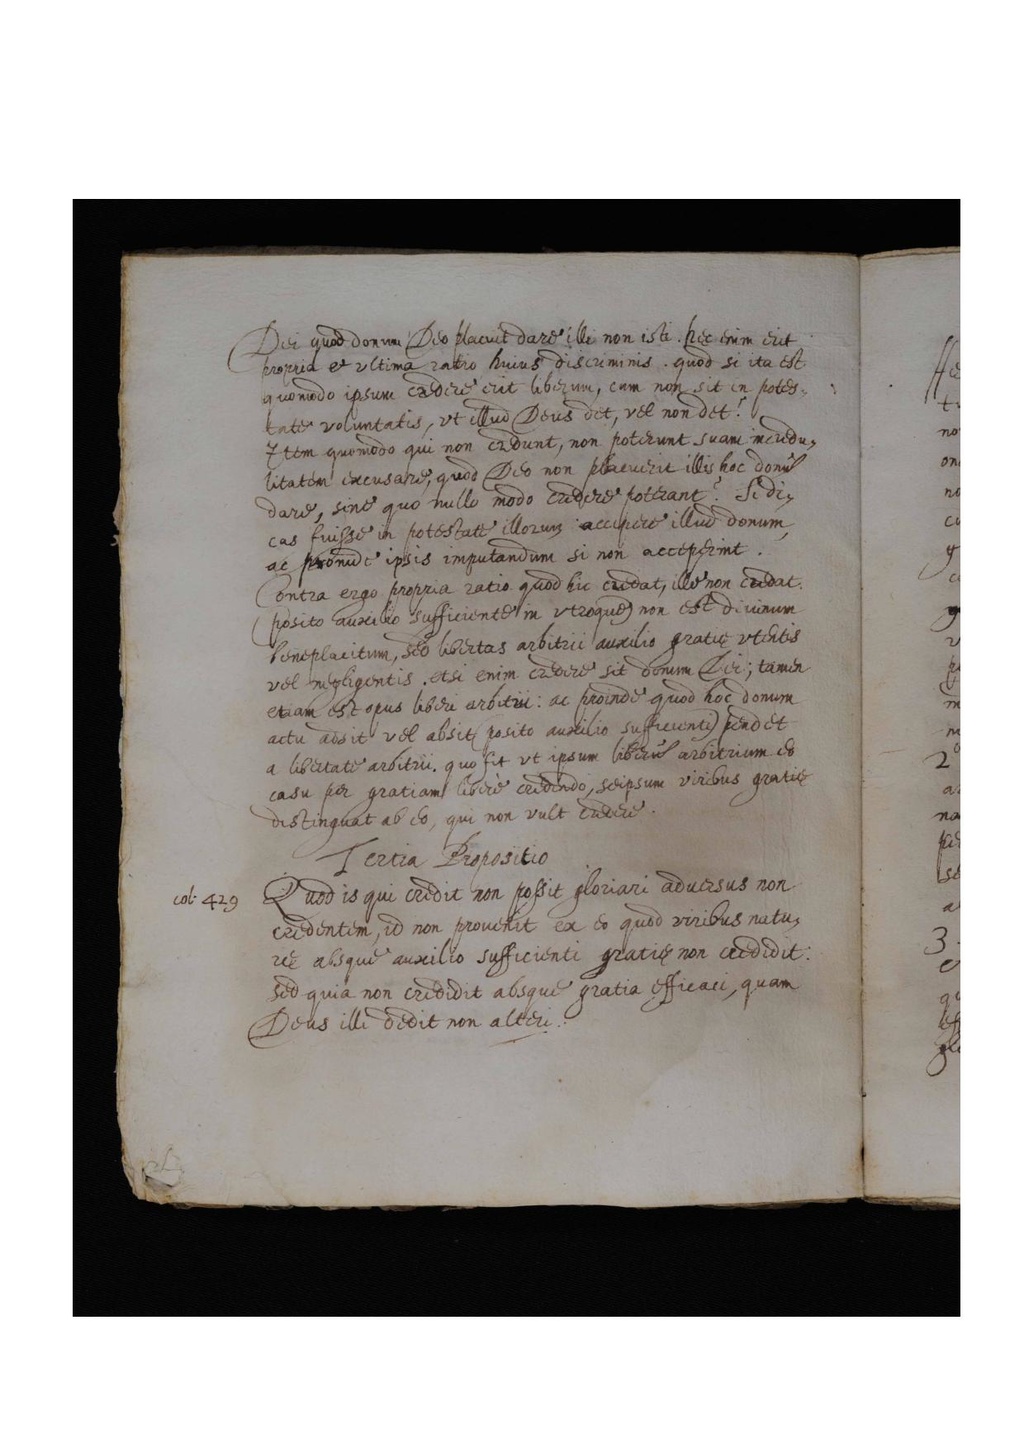 Dei quod donum Deo placuit dare illi non isti. hęc enim erit
propria et vltima ratio huius discriminis. quod si ita est
quomodo ipsum credere erit liberum, cum non sit in potes-
tate voluntatis, vt illud Deus det, vel non det?
Item quomodo qui non credunt, non poterunt suam incredu-
litatem excusare, quod Deo non placuerit illis hoc donũ
dare, sine quo nullo modo credere poterant? Si di-
cas fuisse in potestate illorum accipere illud donum,
ac proinde ipsis imputandum si non acceperint.
Contra ergo propria ratio quod hic credat, ille non credat.
(posito auxilio sufficiente in vtroque) non est diuinum
beneplacitum, sed libertas arbitrii auxilio gratię vtentis
vel negligentis. etsi enim credere sit donum Dei; tamen
etiam est opus liberi arbitrii: ac proinde quod hoc donum
actu adsit vel absit (posito auxilio sufficienti) pendet
a libertate arbitrii. quo fit vt ipsum liberũ arbitrium eo
casu per gratiam liberè credendo, seipsum viribus gratię
distinguat ab eo, qui non vult credere.
Tertia Propositio
col. 429 Quod is qui credit non possit gloriari aduersus non
credentem, id non prouenit ex eo quod viribus natu-
rę absque auxilio sufficienti gratię non credidit:
sed quia non credidit absque gratia efficaci, quam
Deus illi dedit non alteri.
2
3.